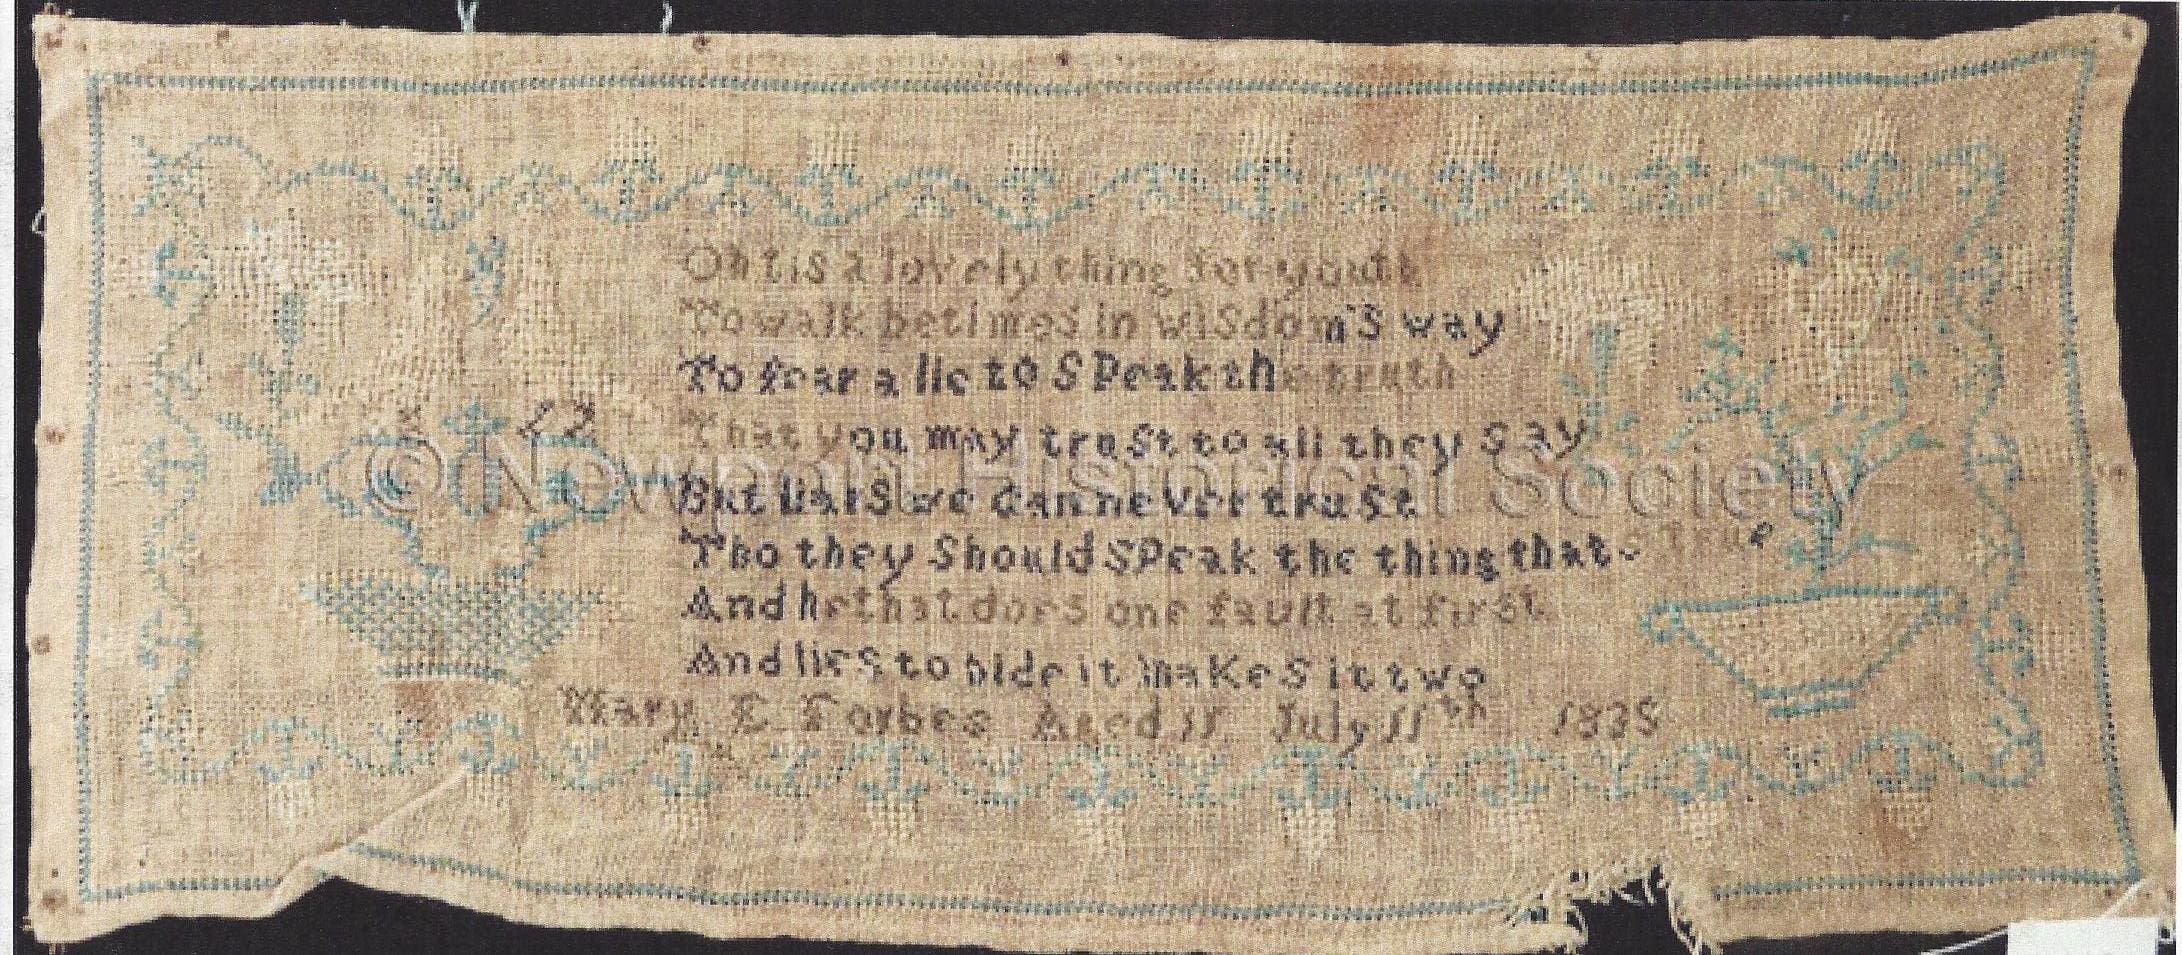 Oh tis a lovely thing for youth
To walk betimes in wisdom's way
To fear a lie to SPeak the truth
That you may trust to all they say
But liars we can never trust
Tho they Should SPeak the thing that's True
And he that does one fault at first
And lies to hide it makes it two
Mary E Forbes Aged 11 July 11th 1835
© Newport Historical Society